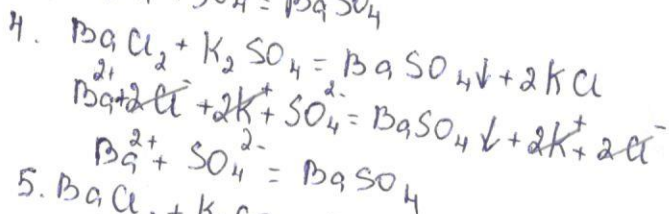 SO4 = BaSO4
4. BaCl2 + K2SO4 = BaSO4↓ + 2KCl
Ba2+ + 2Cl- + 2K+ + SO42- = BaSO4↓ + 2K+ + 2Cl-
Ba2+ + SO42- = BaSO4
5. BaCl2 + K